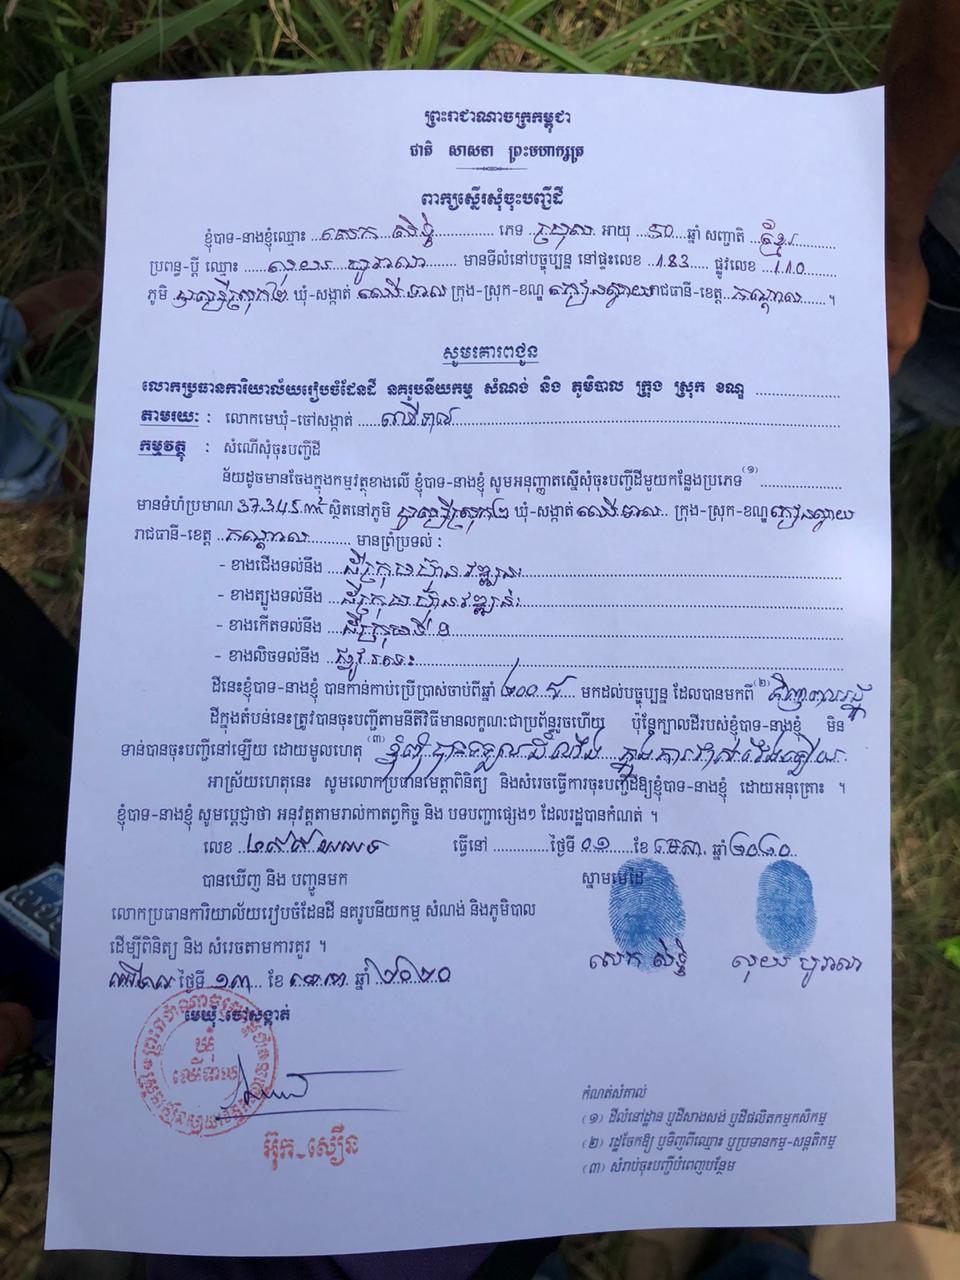 ព្រះរាជាណាចក្រកម្ពុជា
ជាតិ សាសនា ព្រះមហាក្សត្រ
ពាក្យស្នើរសុំចុះបញ្ជីដី
ខ្ញុំបាទ-នាងខ្ញុំឈ្មោះ សេក សិទ្ធិ ភេទ ប្រុស អាយុ ៦០ ឆ្នាំ សញ្ជាតិ ខ្មែរ
ប្រពន្ធ-ប្តី ឈ្មោះ មានទីលំនៅបច្ចុប្បន្ន នៅផ្ទះលេខ 183 ផ្លូវលេខ 110
ភូមិ ឃុំ-សង្កាត់ ឈើទាល ក្រុង-ស្រុក-ខណ្ឌ កៀនស្វាយ រាជធានី-ខេត្ត កណ្តាល ។
សូមគោរពជូន
លោកប្រធានការិយាល័យរៀបចំដែនដី នគរូបនីយកម្ម សំណង់ និង ភូមិបាល ក្រុង ស្រុក ខណ្ឌ
តាមរយៈ : លោកមេឃុំ-ចៅសង្កាត់
កម្មវត្ថុ : សំណើសុំចុះបញ្ជីដី
ន័យដូចមានចែងក្នុងកម្មវត្ថុខាងលើ ខ្ញុំបាទ-នាងខ្ញុំ សូមអនុញ្ញាតស្នើសុំចុះបញ្ជីដីមួយកន្លែងប្រភេទ (១)
មានទំហំប្រមាណ 37345 ម២ ស្ថិតនៅភូមិ ឃុំ-សង្កាត់ ឈើទាល ក្រុង-ស្រុក-ខណ្ឌ កៀនស្វាយ
រាជធានី-ខេត្ត កណ្តាល មានព្រំប្រទល់ :
- ខាងជើងទល់នឹង ដីក្រុមហ៊ុន
- ខាងត្បូងទល់នឹង ដីក្រុមហ៊ុន
- ខាងកើតទល់នឹង
- ខាងលិចទល់នឹង ផ្លូវ
ដីនេះខ្ញុំបាទ-នាងខ្ញុំ បានកាន់កាប់ប្រើប្រាស់ចាប់ពីឆ្នាំ មកដល់បច្ចុប្បន្ន ដែលបានមកពី (២)
ដីក្នុងតំបន់នេះត្រូវបានចុះបញ្ជីតាមនីតិវិធីមានលក្ខណៈជាប្រព័ន្ធរួចហើយ ប៉ុន្តែក្បាលដីរបស់ខ្ញុំបាទ-នាងខ្ញុំ មិន
ទាន់បានចុះបញ្ជីនៅឡើយ ដោយមូលហេតុ (៣) ខ្ញុំ
អាស្រ័យហេតុនេះ សូមលោកប្រធានមេត្តាពិនិត្យ និងសំរេចធ្វើការចុះបញ្ជីដីឱ្យខ្ញុំបាទ-នាងខ្ញុំ ដោយអនុគ្រោះ ។
ខ្ញុំបាទ-នាងខ្ញុំ សូមប្តេជ្ញាថា អនុវត្តតាមរាល់កាតព្វកិច្ច និង បទបញ្ជាផ្សេងៗ ដែលរដ្ឋបានកំណត់ ។
លេខ ធ្វើនៅ ថ្ងៃទី ០១ ខែ មេសា ឆ្នាំ ២០២០
បានឃើញ និង បញ្ជូនមក
ស្នាមមេដៃ
លោកប្រធានការិយាល័យរៀបចំដែនដី នគរូបនីយកម្ម សំណង់ និងភូមិបាល
ដើម្បីពិនិត្យ និង សំរេចតាមការគួរ ។
សេក សិទ្ធិ
ថ្ងៃទី ១៣ ខែ ឆ្នាំ ២០២០
មេឃុំ-ចៅសង្កាត់
ឃុំ
ឈើទាល
អ៊ុក_សឿន
កំណត់សំគាល់
(១) ដីលំនៅដ្ឋាន ឬដីសាងសង់ ឬដីផលិតកម្មកសិកម្ម
(២) រដ្ឋចែកឱ្យ ឬទិញពីឈ្មោះ ឬប្រទានកម្ម-សន្តតិកម្ម
(៣) សំរាប់ចុះបញ្ជីបំពេញបន្ថែម